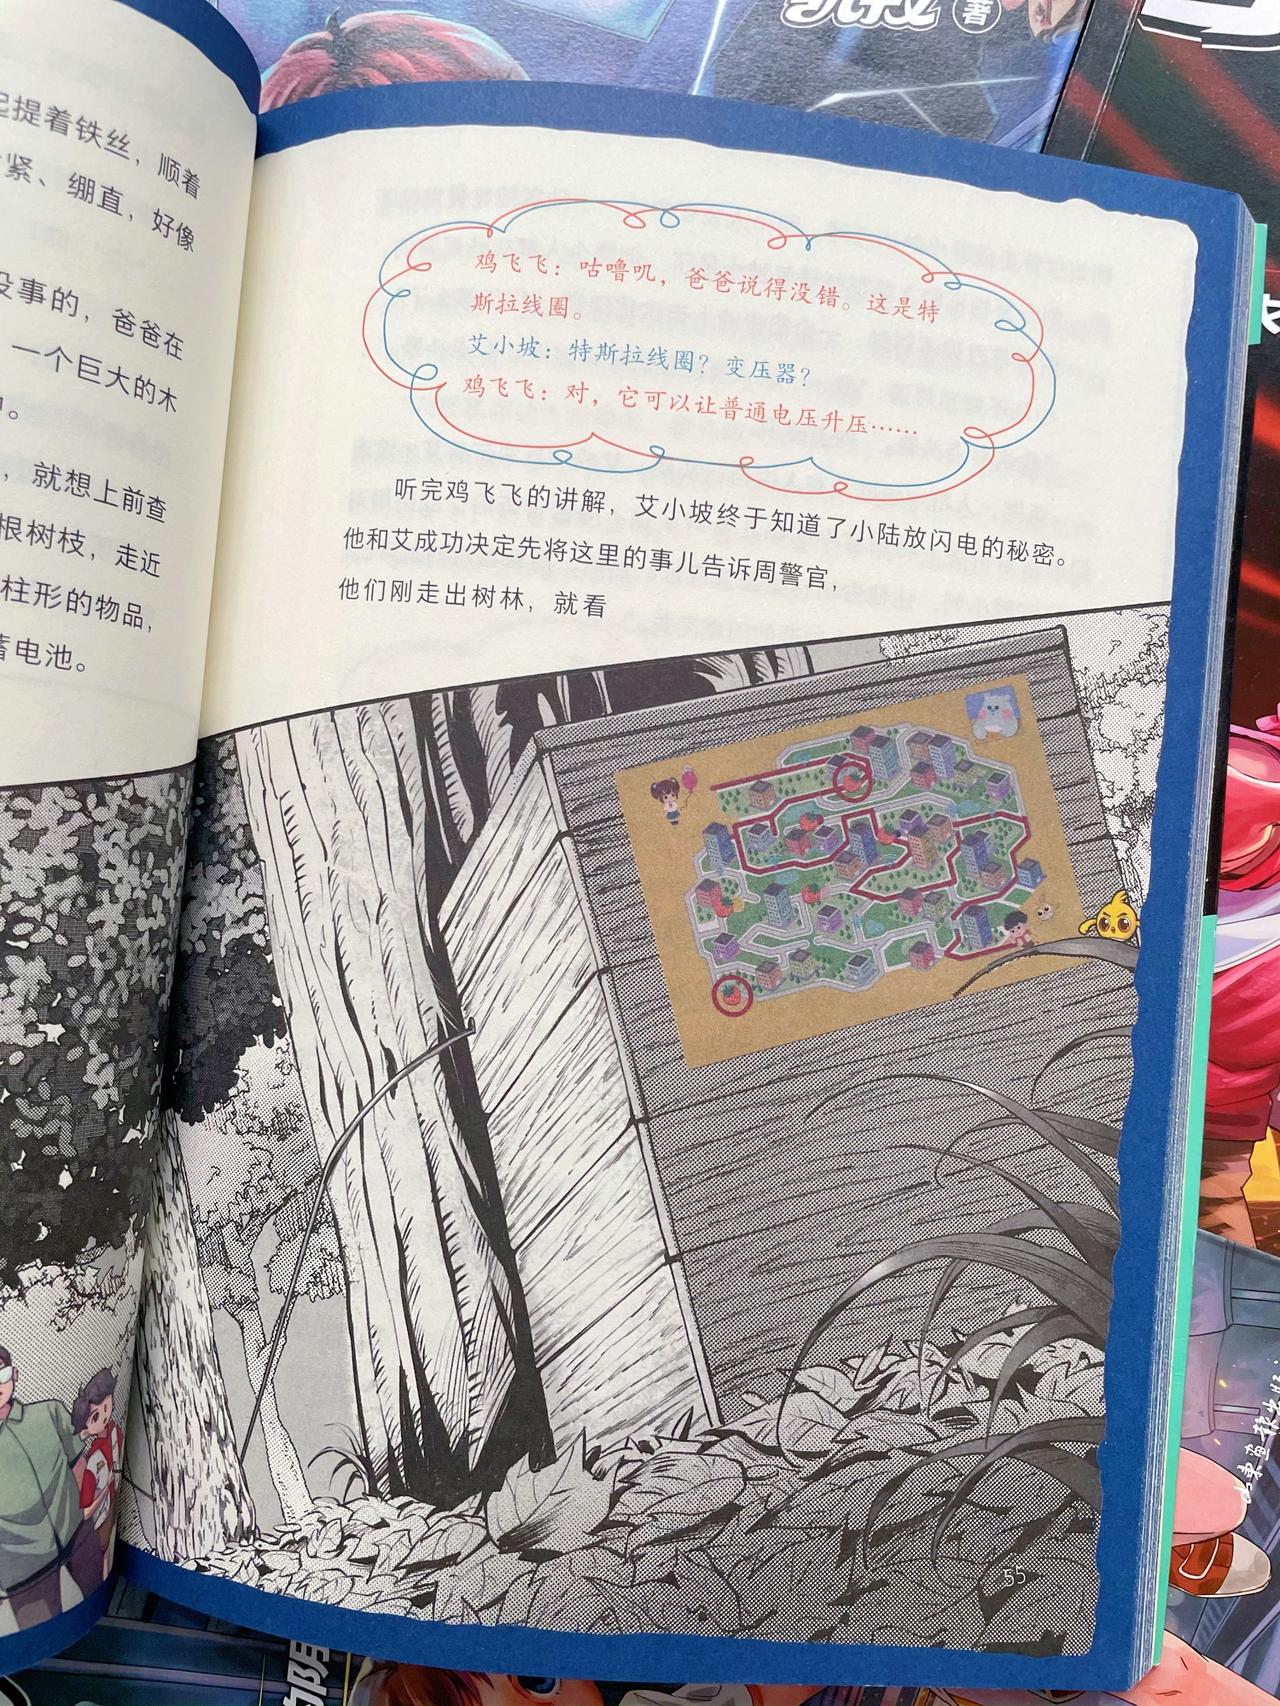 凯叔 著
起提着铁丝，顺着
紧、绷直，好像
没事的，爸爸在
一个巨大的木
中。
，就想上前查
根树枝，走近
柱形的物品，
蓄电池。
鸡飞飞：咕噜叽，爸爸说得没错。这是特
斯拉线圈。
艾小坡：特斯拉线圈？变压器？
鸡飞飞：对，它可以让普通电压升压……
听完鸡飞飞的讲解，艾小坡终于知道了小陆放闪电的秘密。
他和艾成功决定先将这里的事儿告诉周警官，
他们刚走出树林，就看
55